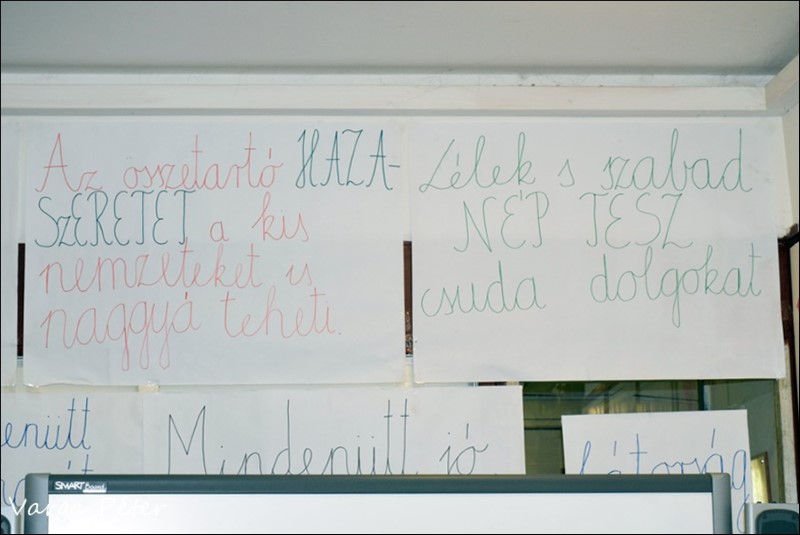 Az összetartó HAZA-
SZERETET a kis
nemzeteket is
naggyá teheti.
Lélek s szabad
NÉP TESZ
csuda dolgokat
enütt
Mindenütt jó
bátorság
SMART Board
Varga Péter